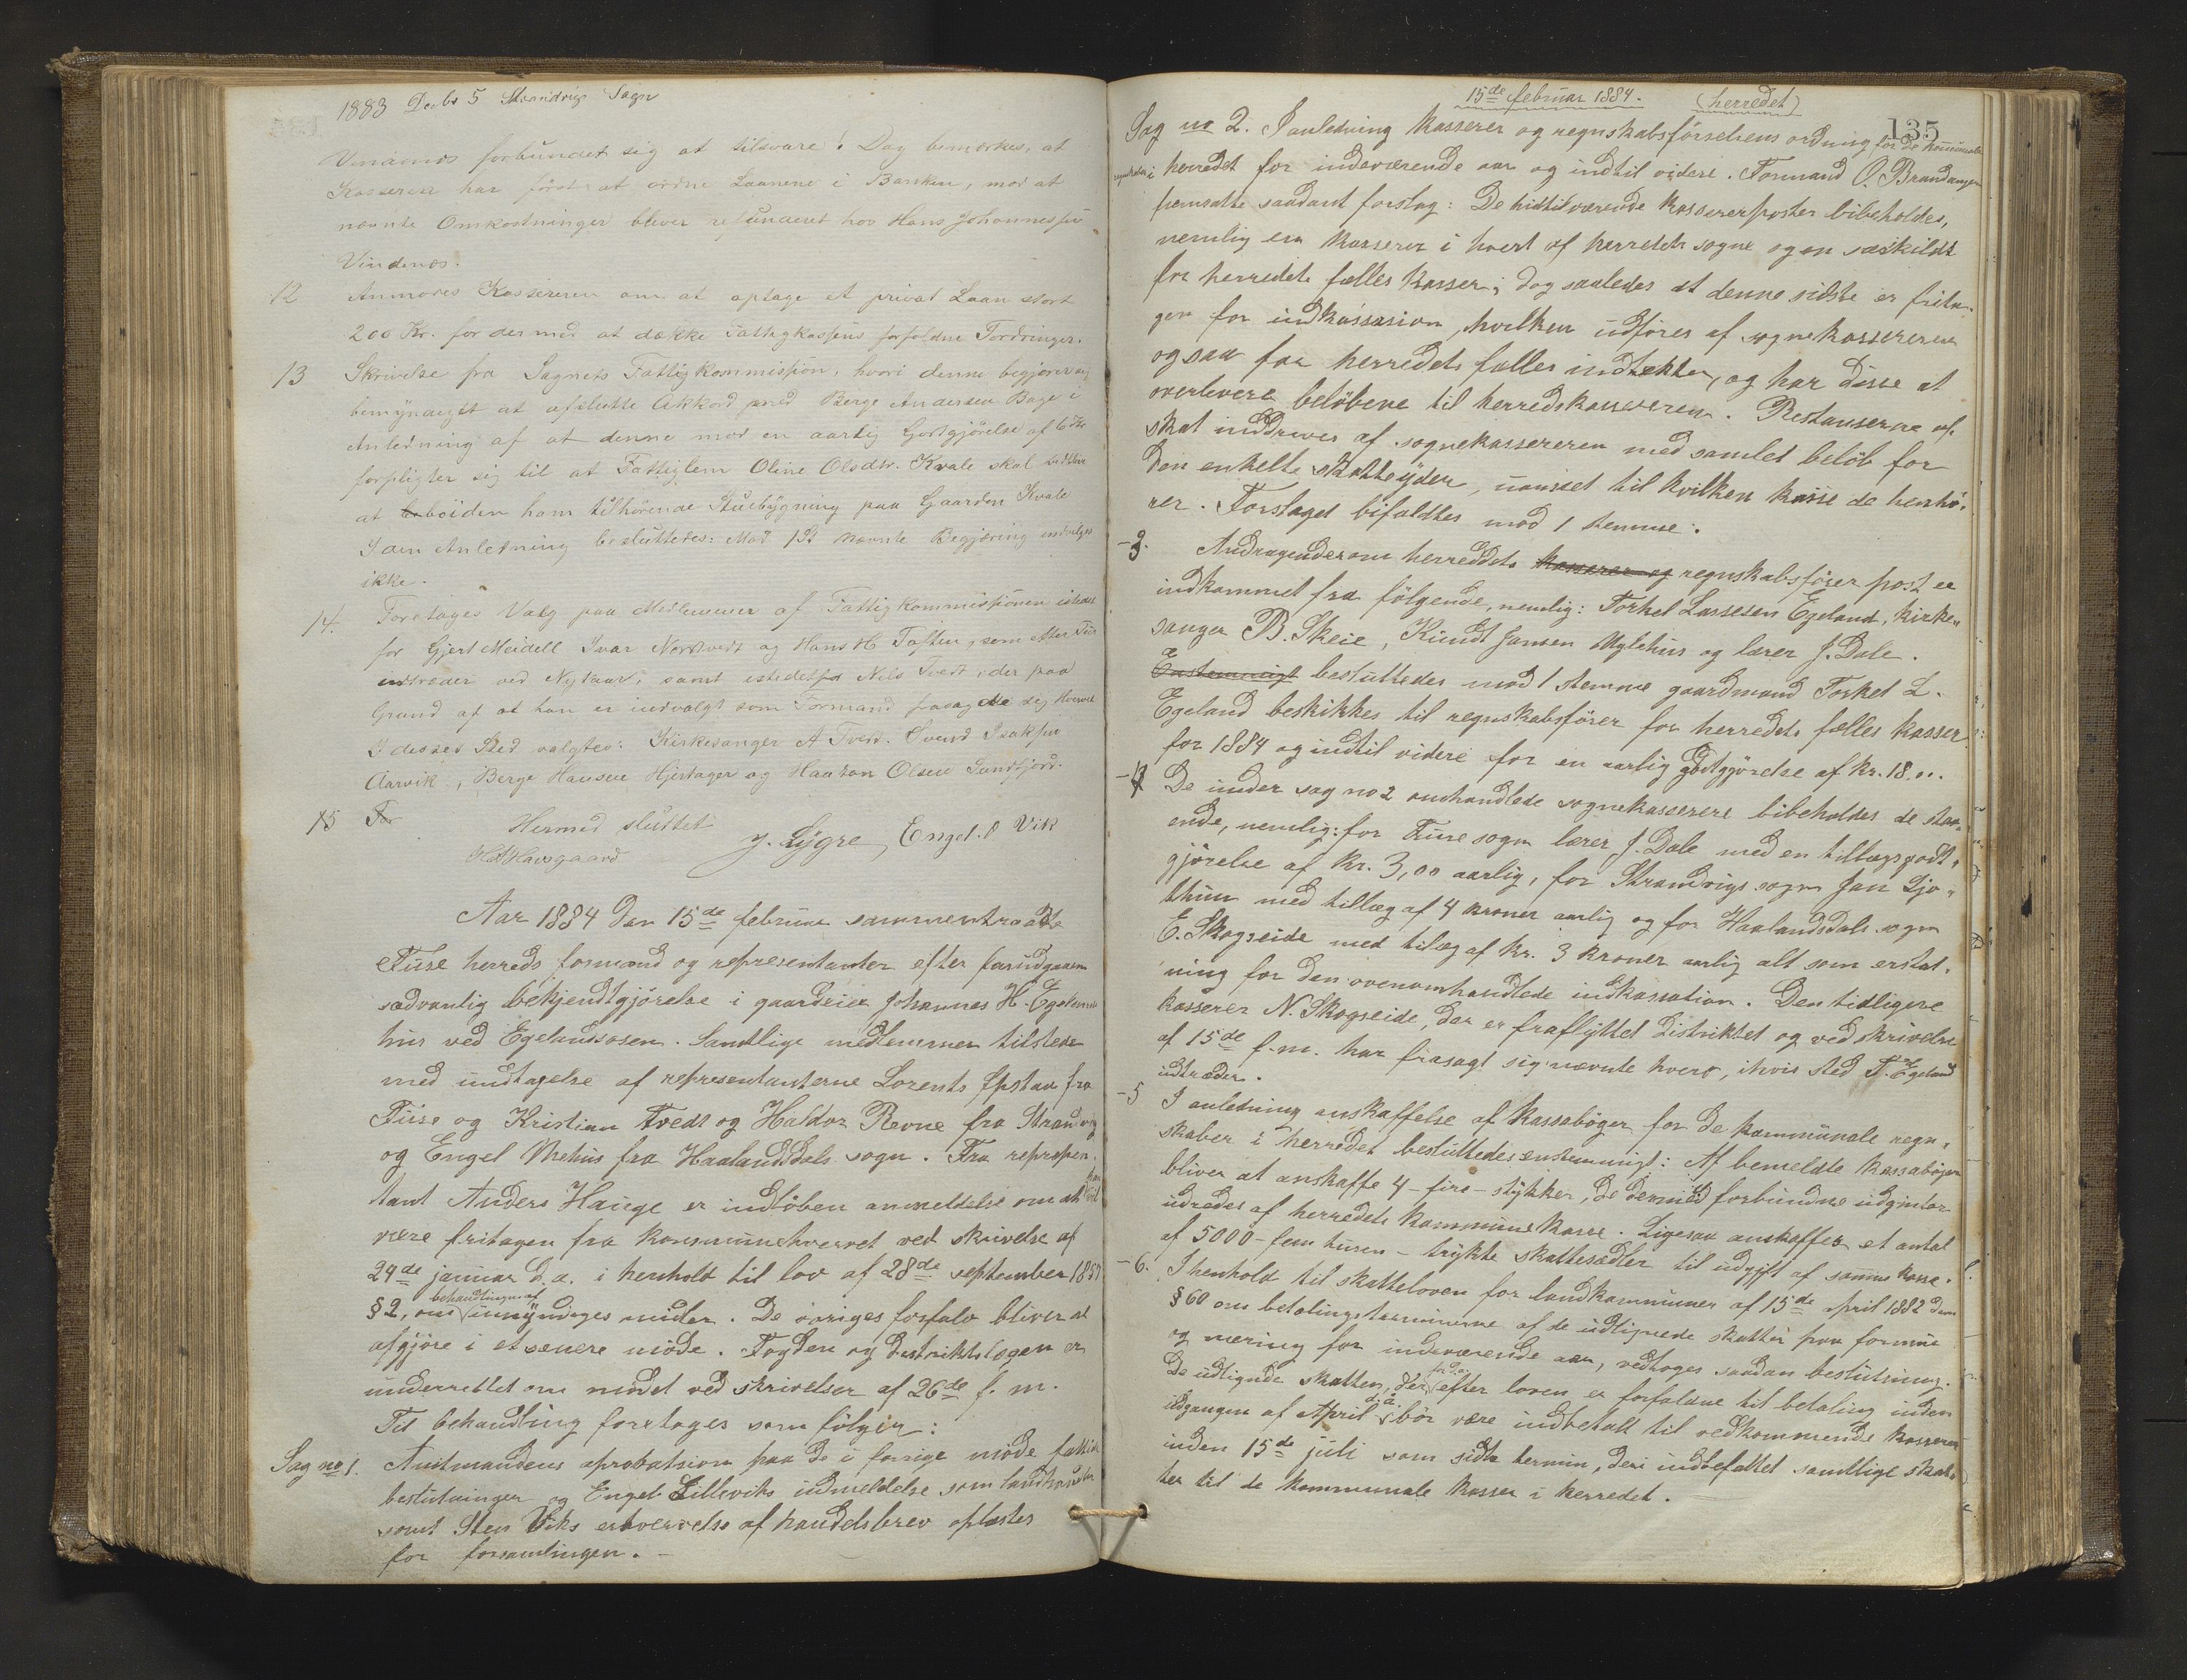 1883 Decbr 5 Strandvigs Sogn
Vinænes forbundet sig at tilsvare! Dog bemærkes, at
Kassereren har först at ordne Laanene i Banken, mod at
nævnte Omkostninger bliver refunderet hos Hans Johannesen
Vindenes.
12 Anmodes Kassereren om at optage et privat Laan stort
200 Kr. for dermed at dække Fattigkassens forfaldne Fordringer.
13 Skrivelse fra Sognets Fattigkommission, hvori denne begjærer sig
bemyndiget at afslutte Akkord med Berge Andersen Bage i
Anledning af at denne mod en aarlig Godtgjörelse af 6 Kr
forpligter sig til at Fattiglem Oline Olsdtr. Kvale skal
at beboiden ham tilhörende Stuebygning paa Gaarden Kvale
I den Anledning besluttedes: Mod 1 St nævnte Begjæring indvilges
ikke.
14. Foretages Valg paa Medlemmer af Fattigkommissionen istedet
for Gjert Meidell Ivar Nordtvedt og Hans H Toften, som efter Tur
udtræder ved Nytaar, samt istedetfor Nils Tvedt, der paa
Grund af at han er indvalgt som Formand frasagde sig Hvervet
I desses Sted valgtes: Kirkesanger A Tvedt. Svend Isaksen
Aarvik, Berge Hansen Hjertager og Haakon Olsen Sundfjord.
15 For
Hermed sluttet
H. Havsgaard J. Lygre, Engel. O Vik
Aar 1884 den 15de februar sammentraadte
Fuse herreds formænd og representanter efter forudgaaen
sædvanlig bekjendtgjörelse i gaardeier Johannes H. Egelands
hus ved Egelandsosen. Samtlige medlemmer tilstede
med undtagelse af representanterne Lorents Opstad fra
Fuse og Kristian Tvedt og Haldor Revne fra Strandvig
og Engel Mehus fra Haalandsdals sogn. Fra represen-
tant Anders Hauge er indlöben anmeldelse om at
være fritagen fra kommunehvervet ved skrivelse af
24de januar d.a. i henhold til lov af 28de september 1857
§ 2, om behandlingen af umyndiges midler. De övriges forfald bliver at
afgjöre i et senere möde. Fogden og distriktslægen er
underrettet om mödet ved skrivelser af 26de f. m.
Til behandling foretages som fölger:
Sag no 1. Amtmandens aprobatsion paa de i forrige möde fattede
beslutninger og Engel Lilleviks udmeldelse som landhandler
samt Sten Viks erhvervelse af handelsbrev oplæstes
for forsamlingen.
15de februar 1884. (herredet)
135
Sag no 2. I anledning kasserer og regnskabsförselens ordning for de kommunale
regnskaber i herredet for indeværende aar og indtil videre. Formand O. Brandanger
fremsatte saadant forslag: De hidtilværende kassererposter bibeholdes,
nemlig en kasserer i hvert af herredets sogne og en særskildt
for herredets fælles kasser; dog saaledes at denne sidste er frita-
gen for indkassasion, hvilken udföres af sognekassereren
ogsaa for herredets fælles indtækter, og har disse at
overlevere belöbene til herredskassereren. Restanserne af
skat inddrives af sognekassereren med samlet belöb for
den enkelte skatteyder, uanset til hvilken kasse de henhö-
rer. Forslaget bifaldtes mod 1 stemme.
-3. Andragender om herreddets kasserer og regnskabsförer post er
indkommet fra fölgende, nemlig: Torkel Lassesen Egeland, kirke-
sanger B. Skeie, Knudt Jansen Uglehus og lærer J. Dale.
Enstemmigt besluttedes mod 1 stemme gaardmand Torkel L.
Egeland beskikkes til regnskabsförer for herredets fælles kasser
for 1884 og indtil videre for en aarlig godtgjörelse af kr. 18,00.
-4 De under sag no 2 omhandlede sognekasserere bibeholdes de staa-
ende, nemlig: for Fuse sogn lærer J. Dale med en tillægsgodt-
gjörelse af kr. 3,00 aarlig, for Strandvigs sogn Jan Ljo-
thun med tillæg af 4 kroner aarlig og for Haalandsdals sogn
E. Skogseide med tilæg af kr. 3 kroner aarlig alt som erstat-
ning for den ovenomhandlede indkassation. Den tidligere
kasserer N. Skogseide, der er fraflyttet distriktet og ved skrivelse
af 15de f.m. har frasagt sig nævnte hverv, i hvis sted T. Egeland
udtræder.
-5 I anledning anskaffelse af kassabøger for de kommunale regn-
skaber i herredet besluttedes enstemmigt: Af bemeldte kassabøger
bliver at anskaffe 4 - fire - stykker, de dermed forbundne udgivter
udredes af herredets kommunekasse. Ligesaa anskaffes et antal
af 5000 - fem tusen - trykte skattesedler til udgift af samme kasse.
-6. I henhold til skatteloven for landkommuner af 15de april 1882 dens
§ 60 om betalingsterminerne af de udlignede skatter paa formue
og næring for indeværende aar, vedtoges saadan beslutning.
De udlignde skatter, der efter loven er forfaldne til betaling inden
udgangen af April d.a. bör være indbetalt til vedkommende kasserer
inden 15de juli som sidste termin, deri indbefattet samtlige skat-
ter til de kommunale kasser i herredet.